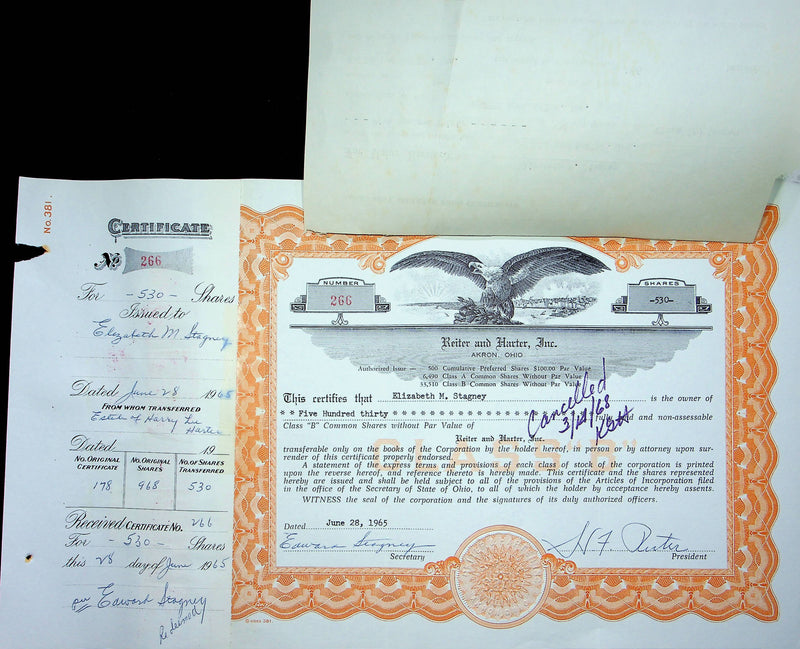 No. 381.
CERTIFICATE
No 266
For -530- Shares
Issued to
Elizabeth M. Stagney
Dated June 28 1965
FROM WHOM TRANSFERRED
Estate of Harry Lee
Harter
Dated 19
NO. ORIGINAL CERTIFICATE NO. ORIGINAL SHARES NO. OF SHARES TRANSFERRED
178 968 530
Received CERTIFICATE NO. 266
For -530- Shares
this 28 day of June 1965
Edward Stagney
NUMBER
266
SHARES
-530-
Reiter and Harter, Inc.
AKRON, OHIO
Authorized Issue — 500 Cumulative Preferred Shares $100.00 Par Value
6,490 Class A Common Shares Without Par Value
33,510 Class B Common Shares Without Par Value
This certifies that Elizabeth M. Stagney is the owner of
* * Five Hundred thirty * * * * * * * * * * * * * * * * fully paid and non-assessable
Class "B" Common Shares without Par Value of
Reiter and Harter, Inc.
CLASS "B"
transferable only on the books of the Corporation by the holder hereof, in person or by attorney upon sur-
render of this certificate properly endorsed.
A statement of the express terms and provisions of each class of stock of the corporation is printed
upon the reverse hereof, and reference thereto is hereby made. This certificate and the shares represented
hereby are issued and shall be held subject to all of the provisions of the Articles of Incorporation filed
in the office of the Secretary of State of Ohio, to all of which the holder by acceptance hereby assents.
WITNESS the seal of the corporation and the signatures of its duly authorized officers.
Cancelled
Dated June 28, 1965
Edward Stagney H F Reiter
Secretary President